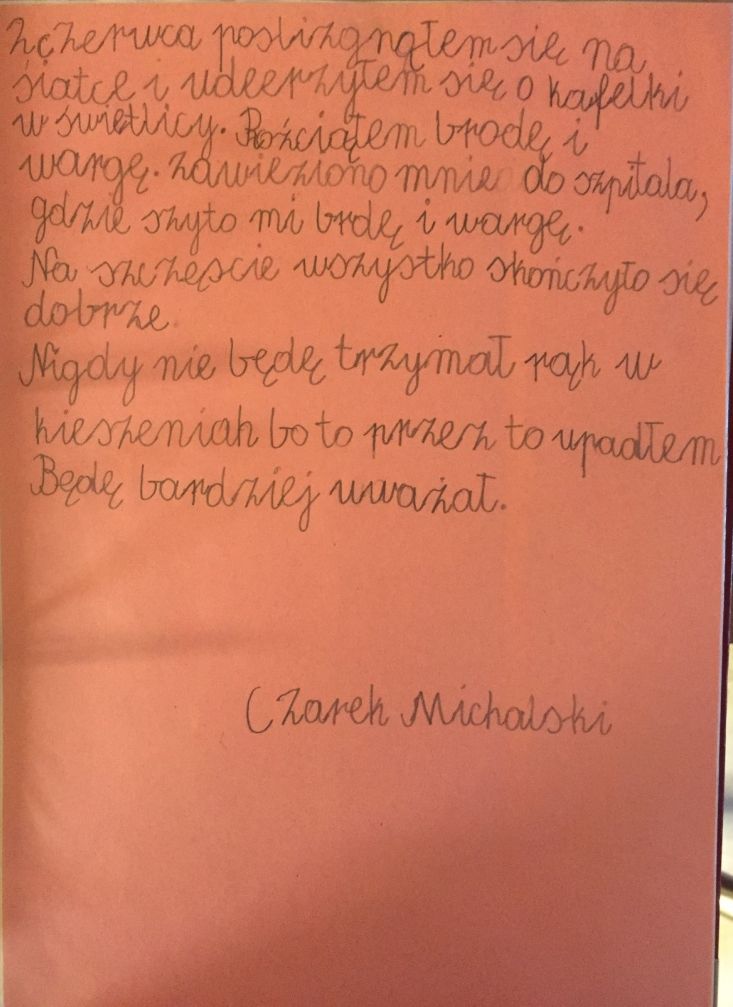 2czerwca poslizgnąłem się na
śiatce i udeerzyłem się o kafelki
w świetlicy. Rozciąłem brodę i
wargę. Zawieziono mnie do szpitala,
gdzie szyto mi brdę i wargę.
Na szczęscie wszystko skończyło się
dobrze.
Nigdy nie będę trzymał rąk w
kieszeniah bo to przez to upadłem
Będę bardziej uważał.
Czarek Michalski